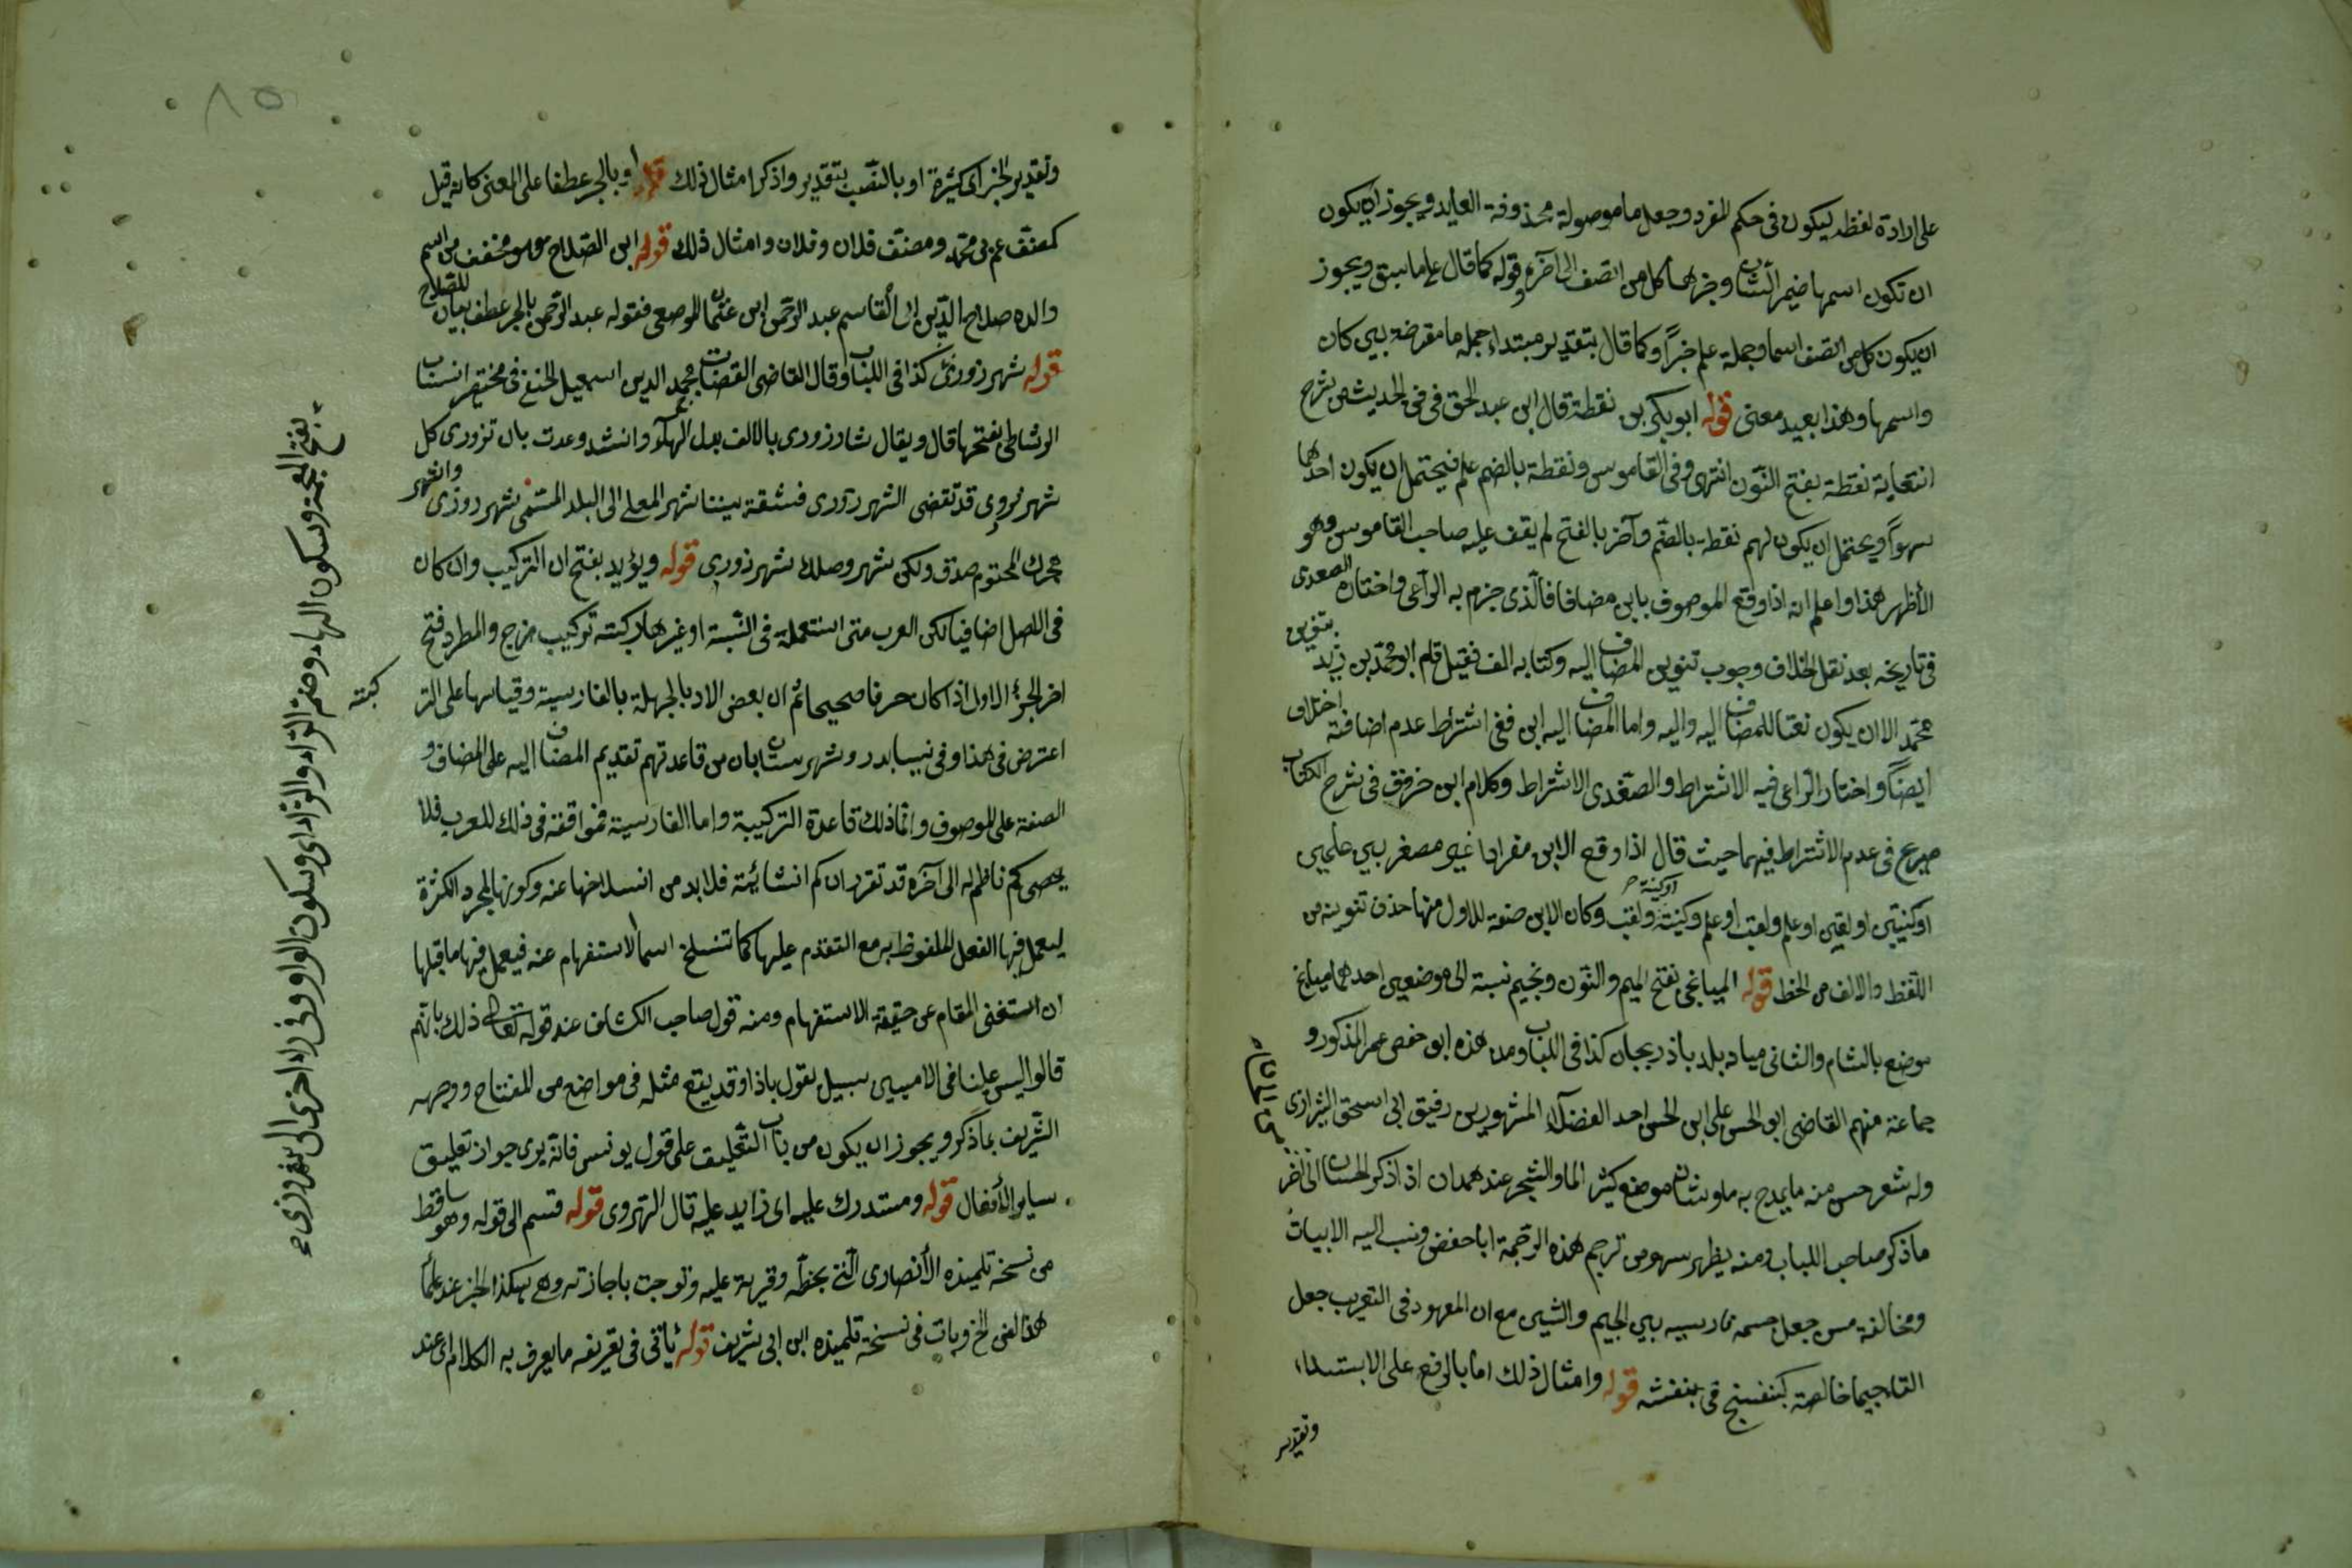 على ارادة لفظه ليكون في حكم المفرد وجعل ما موصولة محذوفة العايد ويجوز ان يكون
ان تكون اسمها ضمير الشان وخبرها كل من اتصف الى آخره وقوله كما قال على ما سبق ويجوز
ان يكون كل من اتصف اسما وجملة علم خبرًا وكما قال بتقدير مبتداء جملة ما معترضة بين كان
واسمها وهذا بعيد معنى قوله ابو بكر بن نقطة قال ابن عبد الحق في في الحديث من شرح
نقطة بفتح النون انتهى وفي القاموس ونقطة بالضم علم فيحتمل ان يكون احدها
سهوًا ويحتمل ان يكون لهم نقطة بالضم وآخر بالفتح لم يقف عليه صاحب القاموس وهو
الأظهر هذا واعلم انه اذا وقع الموصوف بابن مضافا فالذي جزم به الراعي واختاره الصفدي
في تاريخه بعد نقل الخلاف وجوب تنوين المضاف اليه وكتابه الف فنقيل قام ابو محمد بن زيد بتنوين
محمد الا ان يكون نعتا للمضاف اليه واليه واما المضاف اليه ابن ففي اشتراط عدم اضافته اختلاف
ايضًا واختار الراعي فيه الاشتراط والصفدي الاشتراط وكلام ابن خروف في شرح الكتاب
صريح في عدم الاشتراط فيهما حيث قال اذا وقع الابن مفردا غير مصغر بين علمين
او كنيتين او لقبين او علم ولقب او علم وكنية او كنية ولقب وكان الابن صفة للاول منها حذف تنوينه من
اللفظ والالف من الخط قوله الميانجي بفتح الميم والنون وبجيم نسبة الى موضعين احدهما ميانج
موضع بالشام والثاني ميانه بلد باذربيجان كذا في اللباب ومن هذه ابو حفص عمر المذكور و
جماعة منهم القاضي ابو الحسن علي ابن الحسن احد الفضلآ المشهورين رفيق ابي اسحق الشيرازي
وله شعر حسن منه ما يمدح به ماوشان موضع كثير الماء والشجر عند همدان اذا ذكر الحسان الى آخر
ما ذكر صاحب اللباب ومنه يظهر سهو من ترجم هذه الترجمة ابا حفص ونسب اليه الابيات
ومخالفة من جعل جيمه فارسيه بين الجيم والشين مع ان المعهود في التعريب جعل
التاء جيما خالصة كبنفسج في بنفشه قوله وامثال ذلك اما بالرفع على الابتداء
وتقدير
وتقدير الخبر اى كثيرة او بالنصب بتقدير واذكر امثال ذلك قوله او بالجر عطفا على المعنى كانه قيل
كمصنف عمر بن محمد ومصنف فلان وفلان وامثال ذلك قوله ابن الصلاح هو مخفف من اسم
والده صلاح الدين ابي القاسم عبد الرحمن ابن عثمان الموصعي فقوله عبد الرحمن بالجر عطف بيان للصلاح
قوله شهرزوري كذا في اللباب وقال القاضي القضات مجد الدين اسمعيل الحنفي في مختصر انساب
الرشاطي بفتحها قال ويقال شاورزوري بالالف بدل الهآء وانشد وعدت بان تزوري كل
شهر فزوري قد تقضى الشهر زوري فشقة بيننا نهر المعلى الى البلد المسمى شهرزوري واشهر
محرك المحتوم صدق ولكن شهر وصلك شهرزوري قوله ويؤيد بفتح ان التركيب وان كان
في الاصل اضافيا لكن العرب متى استعملته في النسبة او غيرها ركبته تركيب مزج والمطرد فتح
اخر الجزء الاول اذا كان حرفا صحيحا ثم ان بعض الادبا لجهله بالفارسية وقياسها على التر كية
اعترض في هذا وفي نيسابور وشهرستان بان من قاعدتهم تقديم المضاف اليه على المضاف و
الصفة على الموصوف وانما ذلك قاعدة التركيبة واما الفارسية فموافقة في ذلك للعرب فلا
يحصى كم فاظم له الى آخره قد تقرر ان كم انشائية فلا بد من انسلاخها عنه وكونها لمجرد الكثرة
ليعمل فيها الفعل الملفوظ به مع التقدم عليها كما تنسلخ اسما الاستفهام عنه فيعمل فيها ما قبلها
ان استغنى المقام عن حقيقة الاستفهام ومنه قول صاحب الكشاف عند قوله تعالى ذلك بانهم
قالوا ليس علينا في الاميين سبيل يقول باذا وقد يقع مثله في مواضع من المفتاح ووجهه
الشريف بما ذكر ويجوز ان يكون من باب التعليق على قول يونس فانه يرى جواز تعليق
ساير الأفعال قوله ومستدرك عليه اى زايد عليه قال الهروي قوله قسم الى قوله وهو ساقط
من نسخة تلميذه الأنصاري التي بخطه وقريت عليه وتوجت باجازته وهي هكذا الخبر عند علمأ
هذا الفن الخ وبات في نسخة تلميذه ابن ابي شريف قوله يأتي في تعريفه ما يعرف به الكلام اى عند
بفتح المعجمة وسكون الهاء وضم الراء والزاى وسكون الواو وفي راء اخرى الى شهرزوري